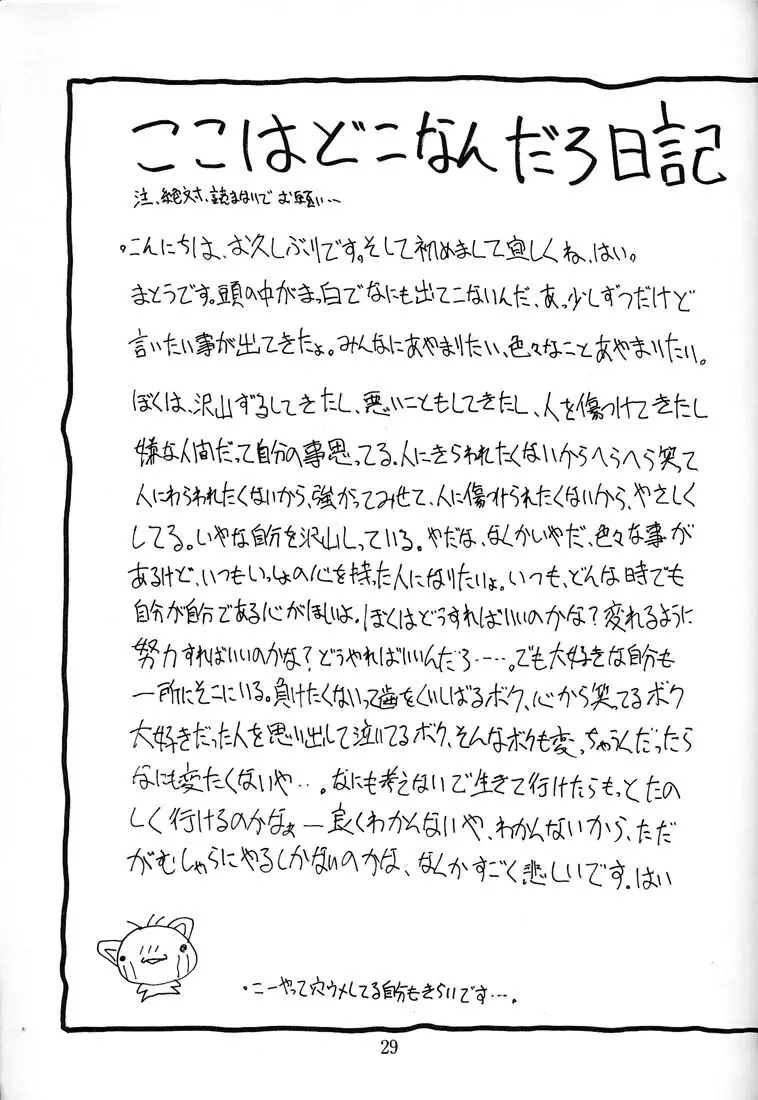 ここはどこなんだろ日記
注、絶対、読まないで お願い…
・こんにちは、お久しぶりです。そして初めまして宜しくね、はい。
まとうです。頭の中がまっ白でなにも出てこないんだ、あっ少しずつだけど
言いたい事が出てきたょ。みんなにあやまりたい、色々なことあやまりたい。
ぼくは、沢山ずるしてきたし、悪いこともしてきたし、人を傷つけてきたし
嫌な人間だって自分の事思ってる。人にきらわれたくないからへらへら笑て
人にわらわれたくないから、強がってみせて、人に傷つけられたくないから、やさしく
してる。いやな自分を沢山しっている。やだな、なんかいやだ、色々な事が
あるけど、いつもいっしょの心を持った人になりたいょ。いつも、どんな時でも
自分が自分である心がほしいよ。ぼくはどうすればいいのかな？変れるように
努力すればいいのかな？どうやればいいんだろ……。でも大好きな自分も
一所にそこにいる。負けたくないって歯をくいしばるボク、心から笑ってるボク
大好きだった人を思い出して泣いてるボク、そんなボクも変っちゃうんだったら
なにも変たくないや…。なにも考えないで生きて行けたらもっとたの
しく行けるのかなぁー良くわかんないや、わかんないから、ただ
がむしゃらにやるしかないのかな、なんかすごく悲しいです。はい
・こーやって穴ウメしてる自分もきらいです…。
29